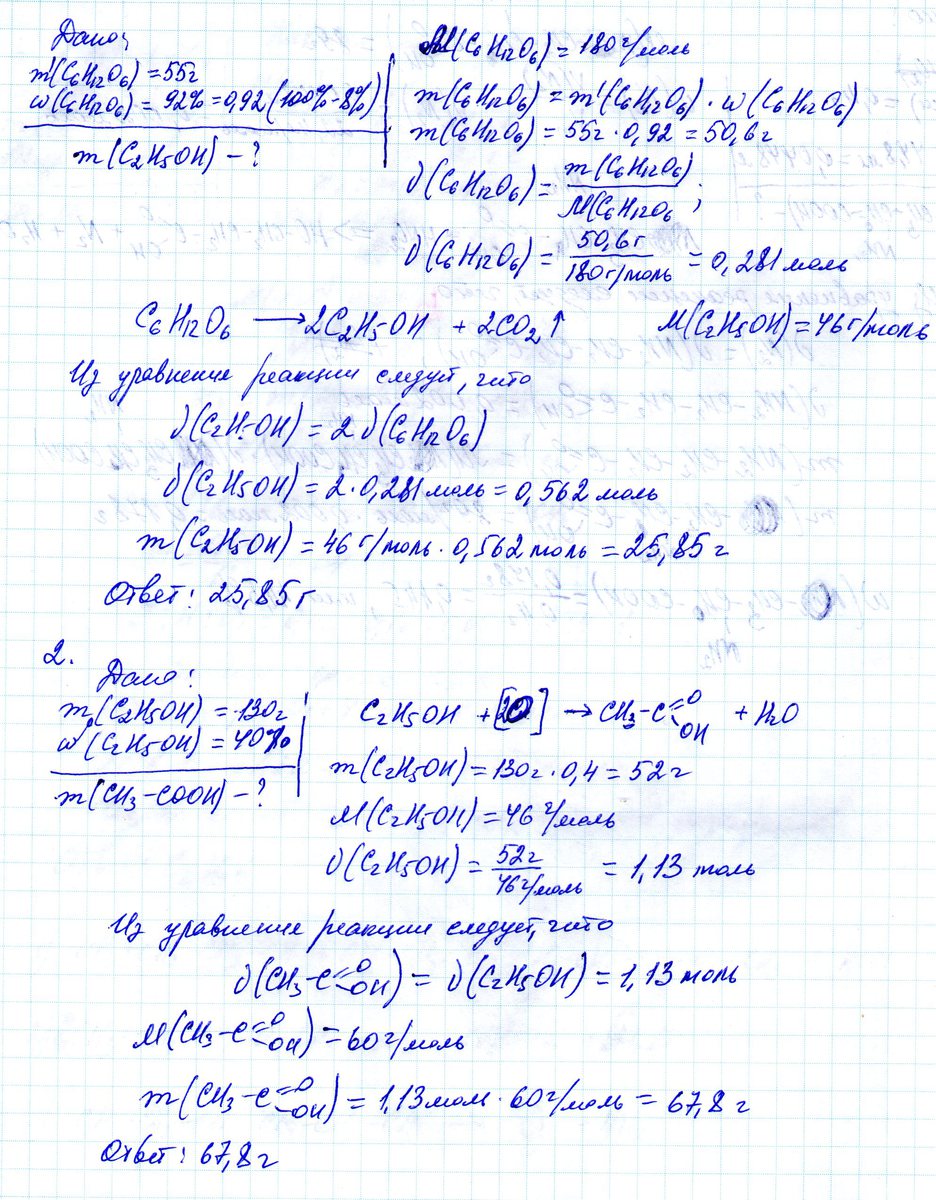 Дано:
m'(C6H12O6) = 55г
ω(C6H12O6) = 92% = 0,92 (100% - 8%)
m(C2H5OH) - ?
M(C6H12O6) = 180 г/моль
m(C6H12O6) = m'(C6H12O6) · ω(C6H12O6)
m(C6H12O6) = 55г · 0,92 = 50,6 г
ν(C6H12O6) = m(C6H12O6) / M(C6H12O6 ;
ν(C6H12O6) = 50,6 г / 180 г/моль = 0,281 моль
C6H12O6 ⟶ 2C2H5-OH + 2CO2↑ M(C2H5OH) = 46 г/моль
Из уравнение реакции следует, что
ν(C2H-OH) = 2 ν(C6H12O6)
ν(C2H5OH) = 2 · 0,281 моль = 0,562 моль
m(C2H5OH) = 46 г/моль · 0,562 моль = 25,85 г
Ответ: 25,85 г
2.
Дано:
mр(C2H5OH) = 130г
ω(C2H5OH) = 40%
m(CH3-COOH) - ?
C2H5OH + [2O] → CH3-C=O OH + H2O
m(C2H5OH) = 130г · 0,4 = 52 г
M(C2H5OH) = 46 г/моль
ν(C2H5OH) = 52г / 46 г/моль = 1,13 моль
Из уравнение реакции следует, что
ν(CH3-C=O OH) = ν(C2H5OH) = 1,13 моль
M(CH3-C=O OH) = 60 г/моль
m(CH3-C=O OH) = 1,13 мол · 60 г/моль = 67,8 г
Ответ: 67,8 г